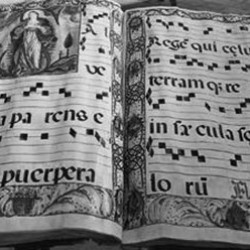 A
ve
apa rens e
puerpera
Rege qui celu
terram q; re
in sæcula sæ
lo rū